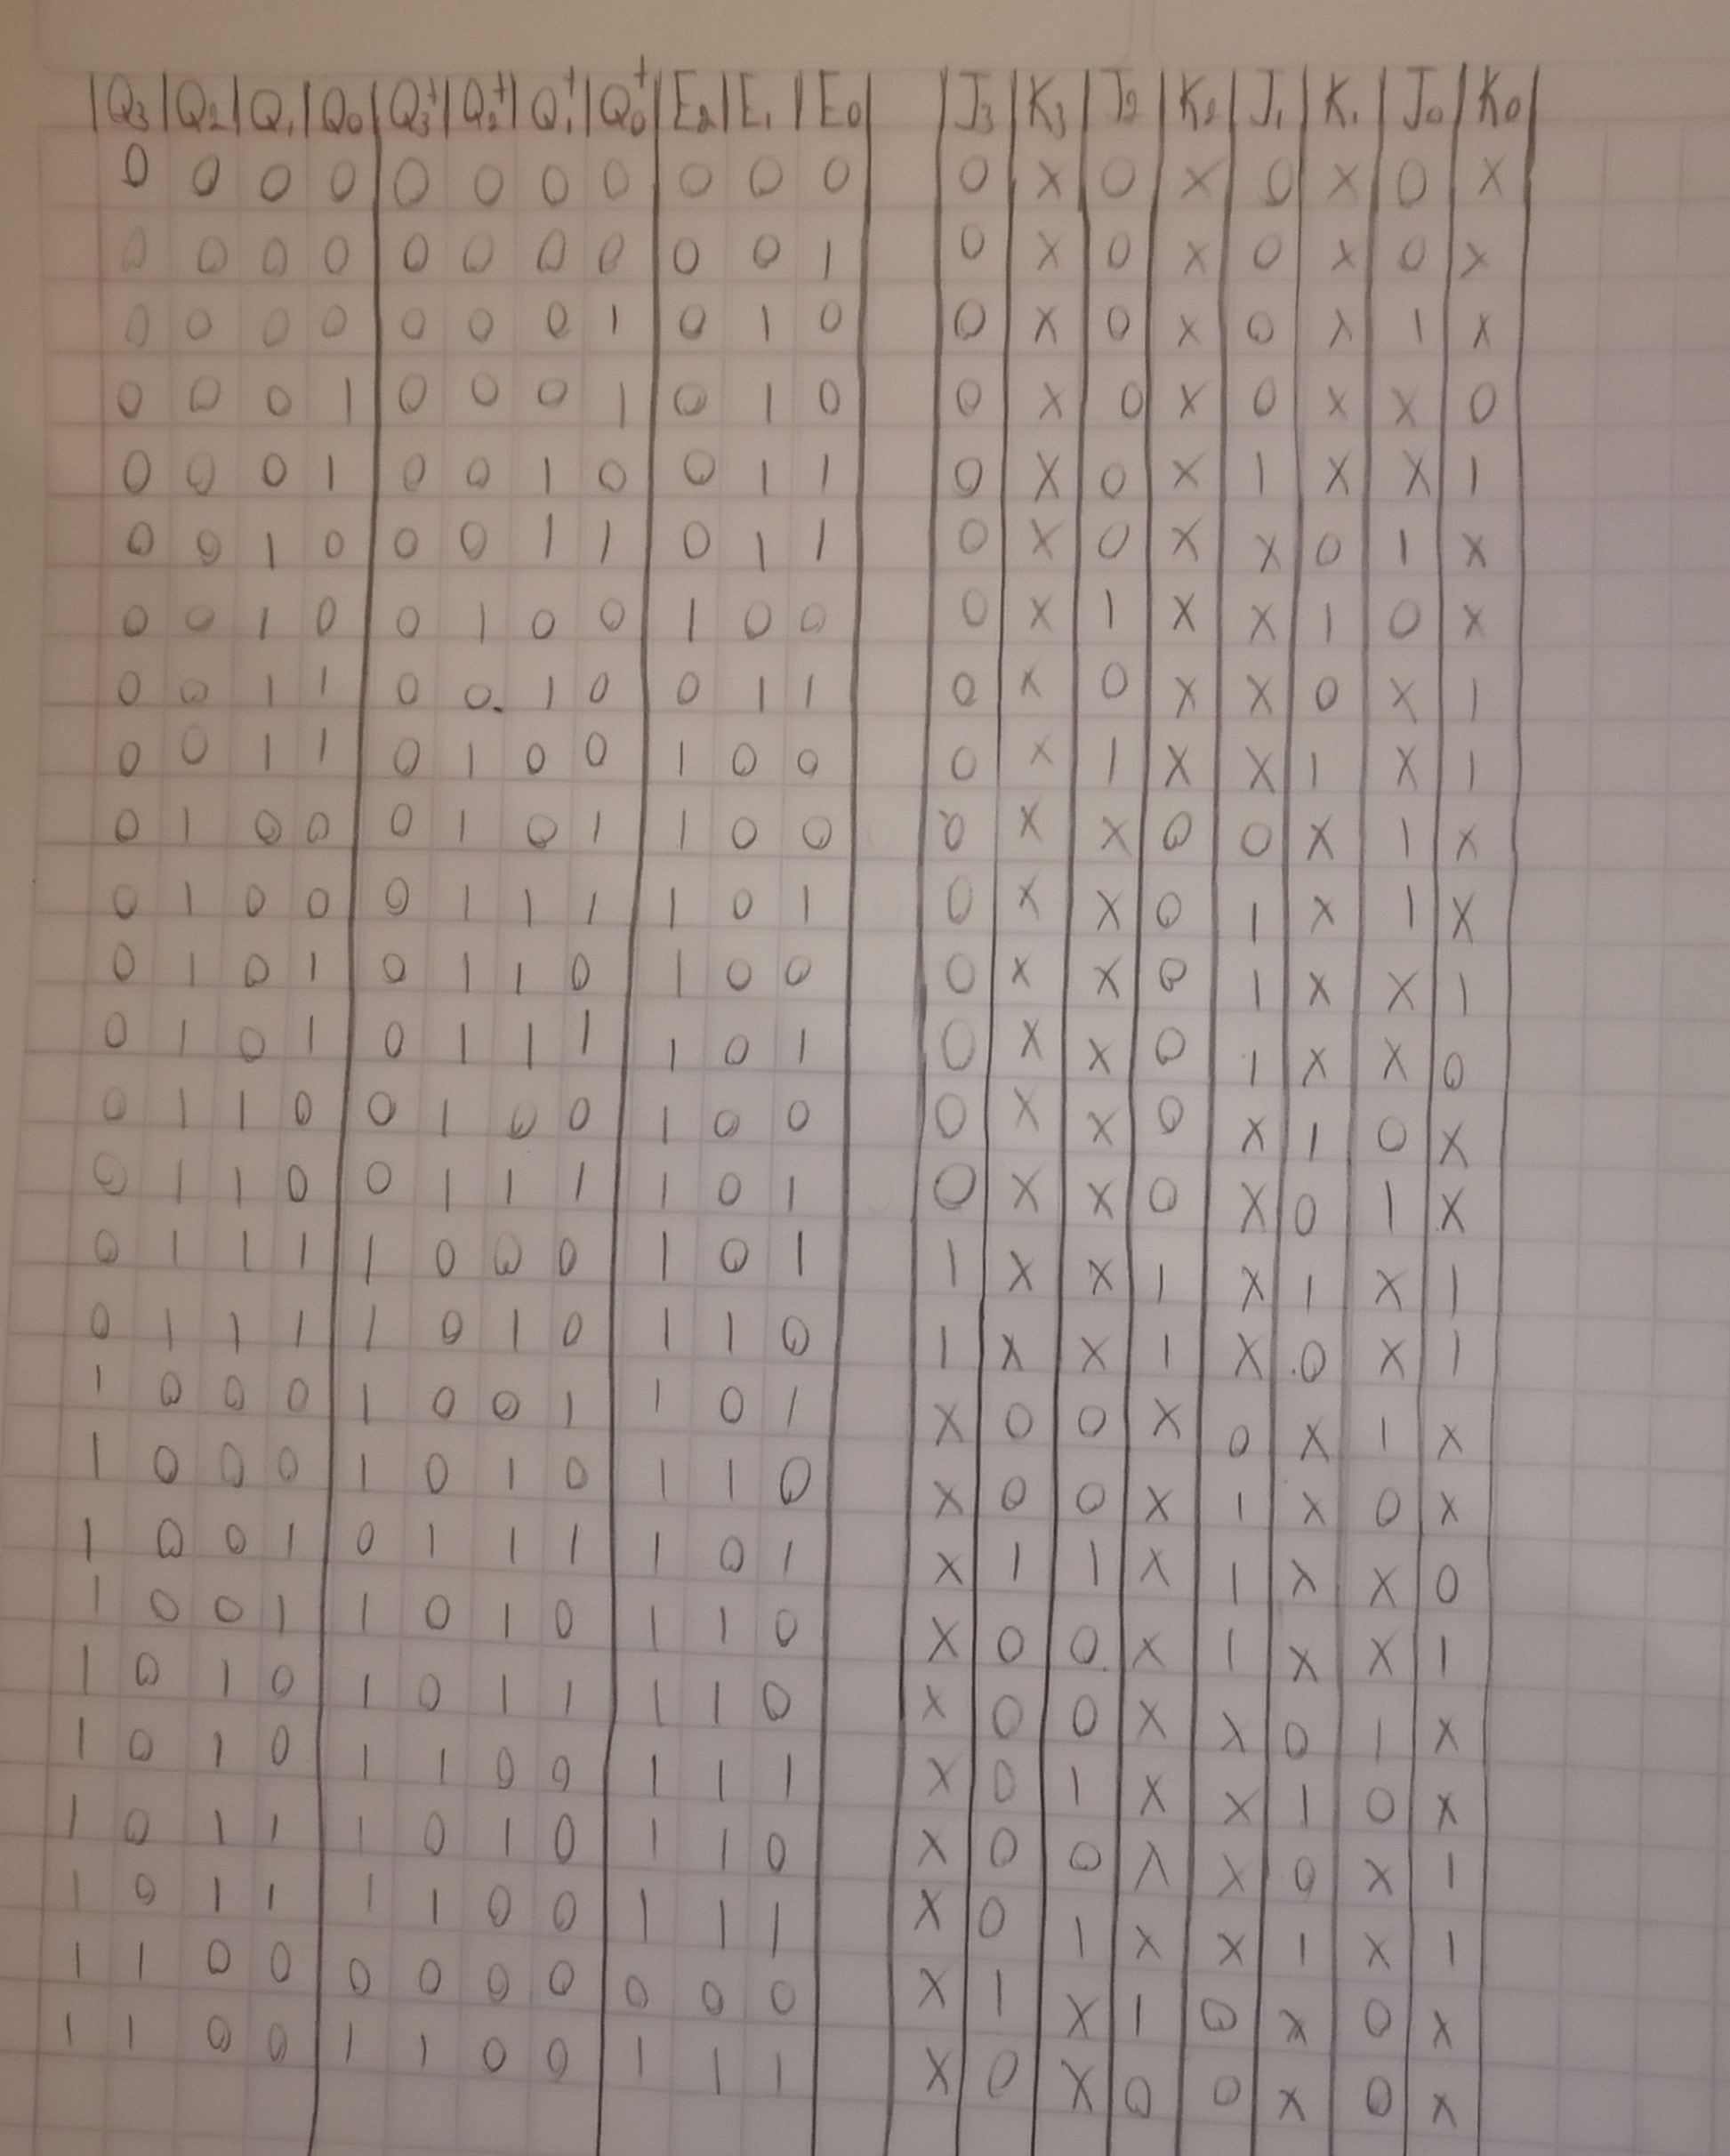 |Q3|Q2|Q1|Q0|Q3+|Q2+|Q1+|Q0+|E2|E1|E0| |J3|K3|J2|K2|J1|K1|J0|K0|
0 0 0 0 0 0 0 0 0 0 0 0 X 0 X 0 X 0 X
0 0 0 0 0 0 0 0 0 0 1 0 X 0 X 0 X 0 X
0 0 0 0 0 0 0 1 0 1 0 0 X 0 X 0 X 1 X
0 0 0 1 0 0 0 1 0 1 0 0 X 0 X 0 X X 0
0 0 0 1 0 0 1 0 0 1 1 0 X 0 X 1 X X 1
0 0 1 0 0 0 1 1 0 1 1 0 X 0 X X 0 1 X
0 0 1 0 0 1 0 0 1 0 0 0 X 1 X X 1 0 X
0 0 1 1 0 0 1 0 0 1 1 0 X 0 X X 0 X 1
0 0 1 1 0 1 0 0 1 0 0 0 X 1 X X 1 X 1
0 1 0 0 0 1 0 1 1 0 0 0 X X 0 0 X 1 X
0 1 0 0 0 1 1 1 1 0 1 0 X X 0 1 X 1 X
0 1 0 1 0 1 1 0 1 0 0 0 X X 0 1 X X 1
0 1 0 1 0 1 1 1 1 0 1 0 X X 0 1 X X 0
0 1 1 0 0 1 0 0 1 0 0 0 X X 0 X 1 0 X
0 1 1 0 0 1 1 1 1 0 1 0 X X 0 X 0 1 X
0 1 1 1 1 0 0 0 1 0 1 1 X X 1 X 1 X 1
0 1 1 1 1 0 1 0 1 1 0 1 X X 1 X 0 X 1
1 0 0 0 1 0 0 1 1 0 1 X 0 0 X 0 X 1 X
1 0 0 0 1 0 1 0 1 1 0 X 0 0 X 1 X 0 X
1 0 0 1 0 1 1 1 1 0 1 X 1 1 X 1 X X 0
1 0 0 1 1 0 1 0 1 1 0 X 0 0 X 1 X X 1
1 0 1 0 1 0 1 1 1 1 0 X 0 0 X X 0 1 X
1 0 1 0 1 1 0 0 1 1 1 X 0 1 X X 1 0 X
1 0 1 1 1 0 1 0 1 1 0 X 0 0 X X 0 X 1
1 0 1 1 1 1 0 0 1 1 1 X 0 1 X X 1 X 1
1 1 0 0 0 0 0 0 0 0 0 X 1 X 1 0 X 0 X
1 1 0 0 1 1 0 0 1 1 1 X 0 X 0 0 X 0 X